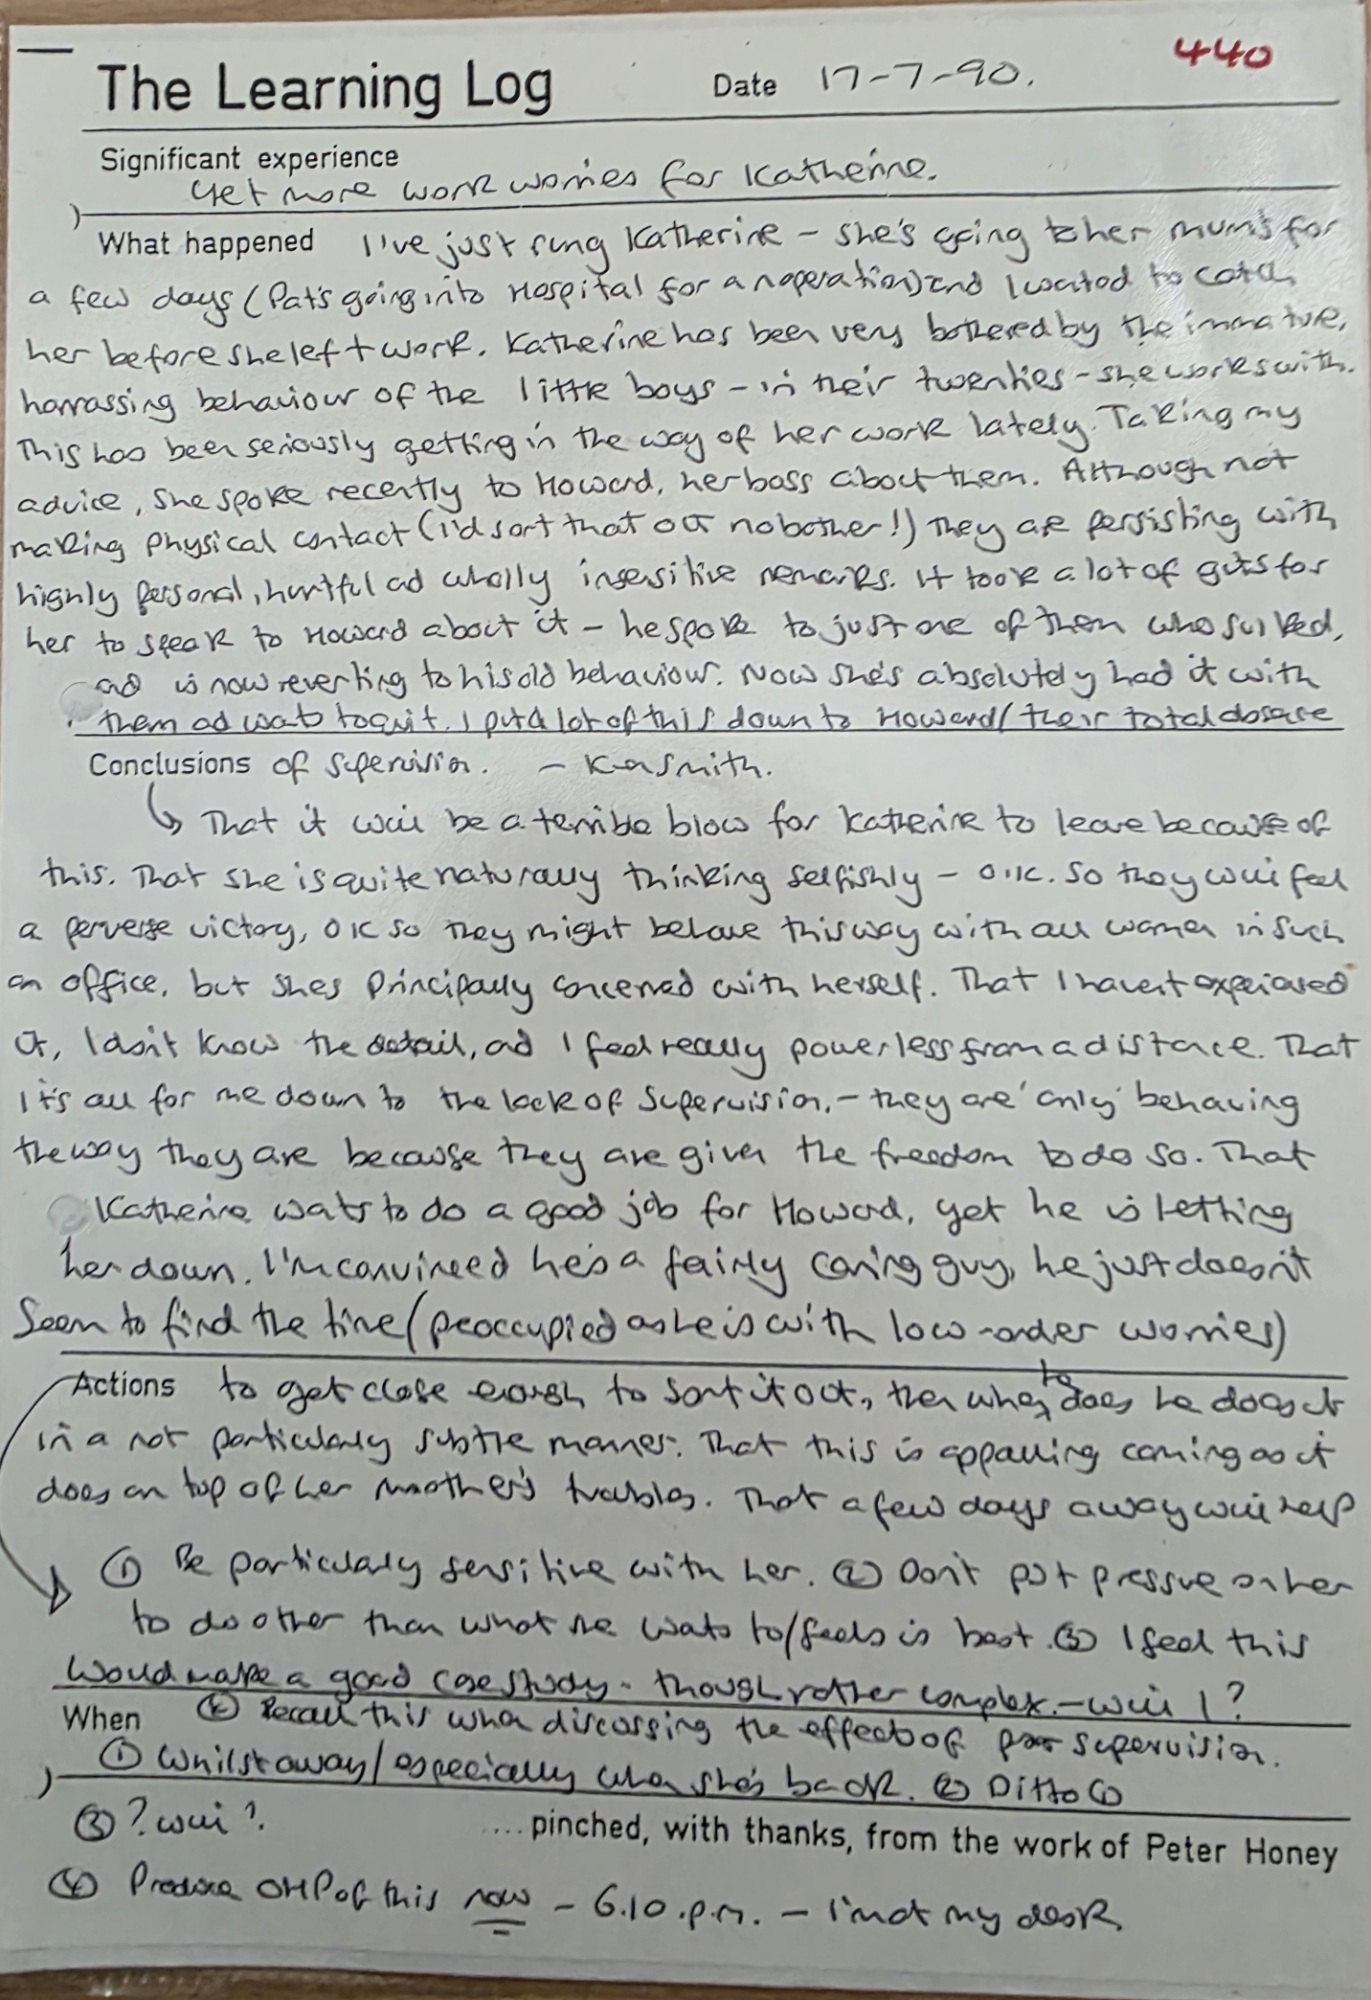 440
The Learning Log Date 17-7-90.
Significant experience
Yet more work worries for Katherine.
What happened I've just rung Katherine - she's going to her mum's for
a few days (Pat's going into Hospital for an operation) and I wanted to catch
her before she left work. Katherine has been very bothered by the immature,
harrassing behaviour of the little boys - in their twenties - she works with.
This has been seriously getting in the way of her work lately. Taking my
advice, she spoke recently to Howard, her boss about them. Although not
making physical contact (I'd sort that out no bother!) They are persisting with
highly personal, hurtful and wholly insensitive remarks. It took a lot of guts for
her to speak to Howard about it - he spoke to just one of them who sulked,
and is now reverting to his old behaviour. Now she's absolutely had it with
them and wants to quit. I put a lot of this down to Howard/their total absence
Conclusions of supervision. - Smith.
That it will be a terrible blow for Katherine to leave because of
this. That she is quite naturally thinking selfishly - O.K. so they will feel
a perverse victory, OK so they might behave this way with all women in such
an office, but she's principally concerned with herself. That I haven't experienced
it, I don't know the detail, and I feel really powerless from a distance. That
it's all for me down to the lack of supervision, - they are 'only' behaving
the way they are because they are given the freedom to do so. That
Katherine wants to do a good job for Howard, yet he is letting
her down. I'm convinced he's a fairly caring guy, he just doesn't
seem to find the time (preoccupied as he is with low-order worries)
Actions to get close enough to sort it out, then when he does he does it
in a not particularly subtle manner. That this is appalling coming as it
does on top of her mother's troubles. That a few days away will help
① Be particularly sensitive with her. ② Don't put pressure on her
to do other than what she wants to/feels is best. ③ I feel this
would make a good case study - though rather complex. - will I?
When ④ Recall this when discussing the effects of poor supervision.
① Whilst away/especially when she's back. ② Ditto ①
③ ? will ?
....pinched, with thanks, from the work of Peter Honey
④ Produce OHP of this now - 6.10.p.m. - I'm at my desk.